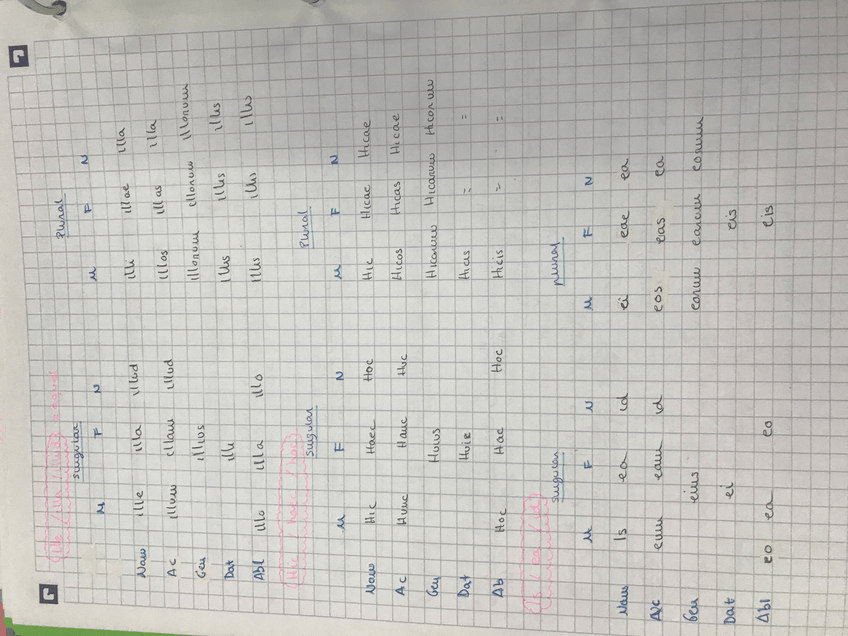 Ille / illa / illud
Singular Plural
M F N M F N
Nom ille illa illud illi illae illa
Ac illum illam illud illos illas illa
Gen illius illorum illorum illorum
Dat illi illis illis illis
Abl illo illa illo illis illis illis
Hic haec hoc
Singular Plural
M F N M F N
Nom Hic Haec Hoc Hic Hicae Hicae
Ac Hunc Hanc Huc Hicos Hicas Hicae
Gen Huius Hicorum Hicarum Hicorum
Dat Huic Hicis = =
Ab Hoc Hac Hoc Hicis = =
is / ea / id
Singular Plural
M F N M F N
Nom Is ea id ei eae ea
A/c eum eam id eos eas ea
Gen eius eorum earum eorum
Dat ei eis
Abl eo ea eo eis